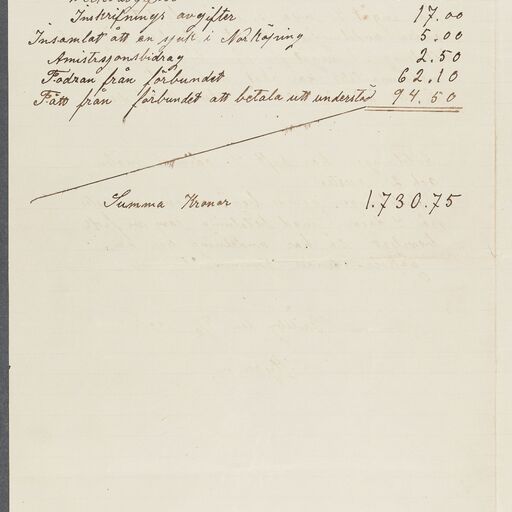 Inskrifnings avgifter 17.00
Insamlat ått en sjuk i Norköping 5.00
Amistrsjonsbidrag 2.50
Fodran från förbundet 62.10
Fått från förbundet att betala utt understöd 94.50
Summa Kronor 1.730.75